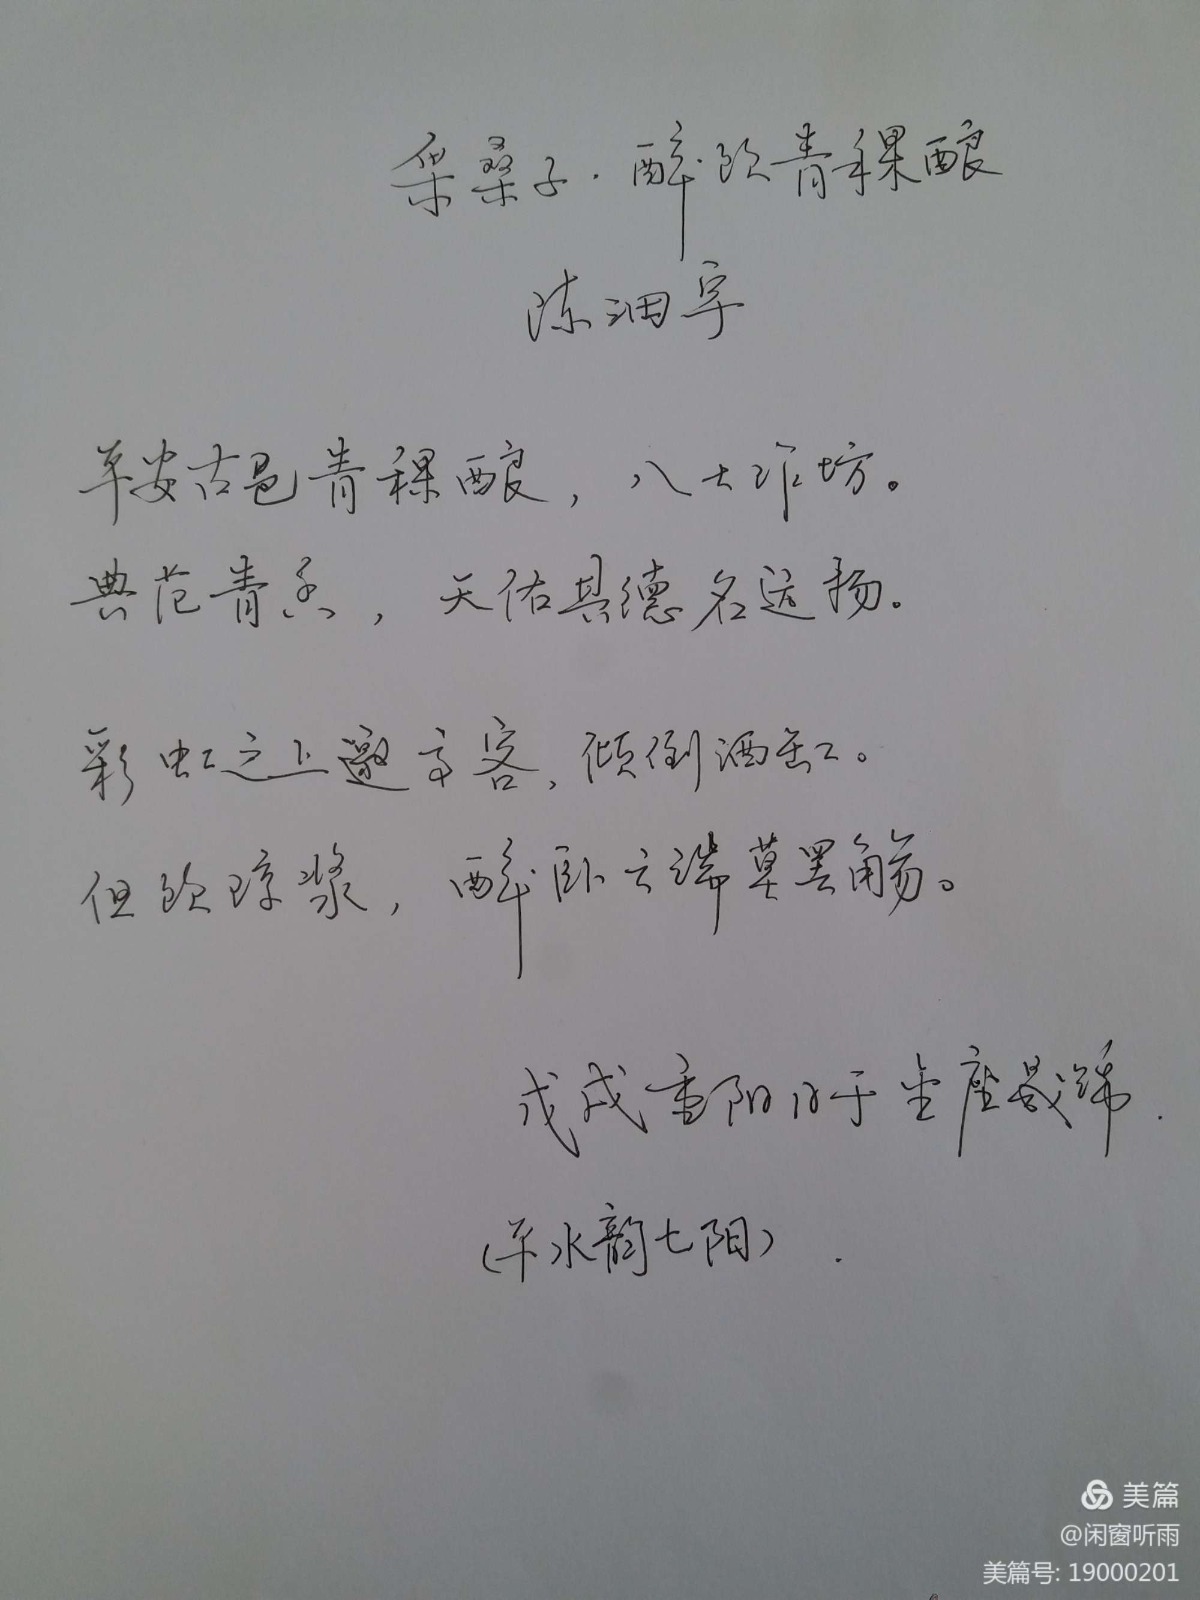 采桑子·醉饮青稞酿
陈泗宇
平安古邑青稞酿，八大作坊。
典范青香，天佑其德名远扬。
彩虹之上邀高客，倾倒酒缸。
但饮琼浆，醉卧云端莫罢觞。
戊戌重阳日于金座晟锦.
(平水韵七阳).
美篇
@闲窗听雨
美篇号: 19000201